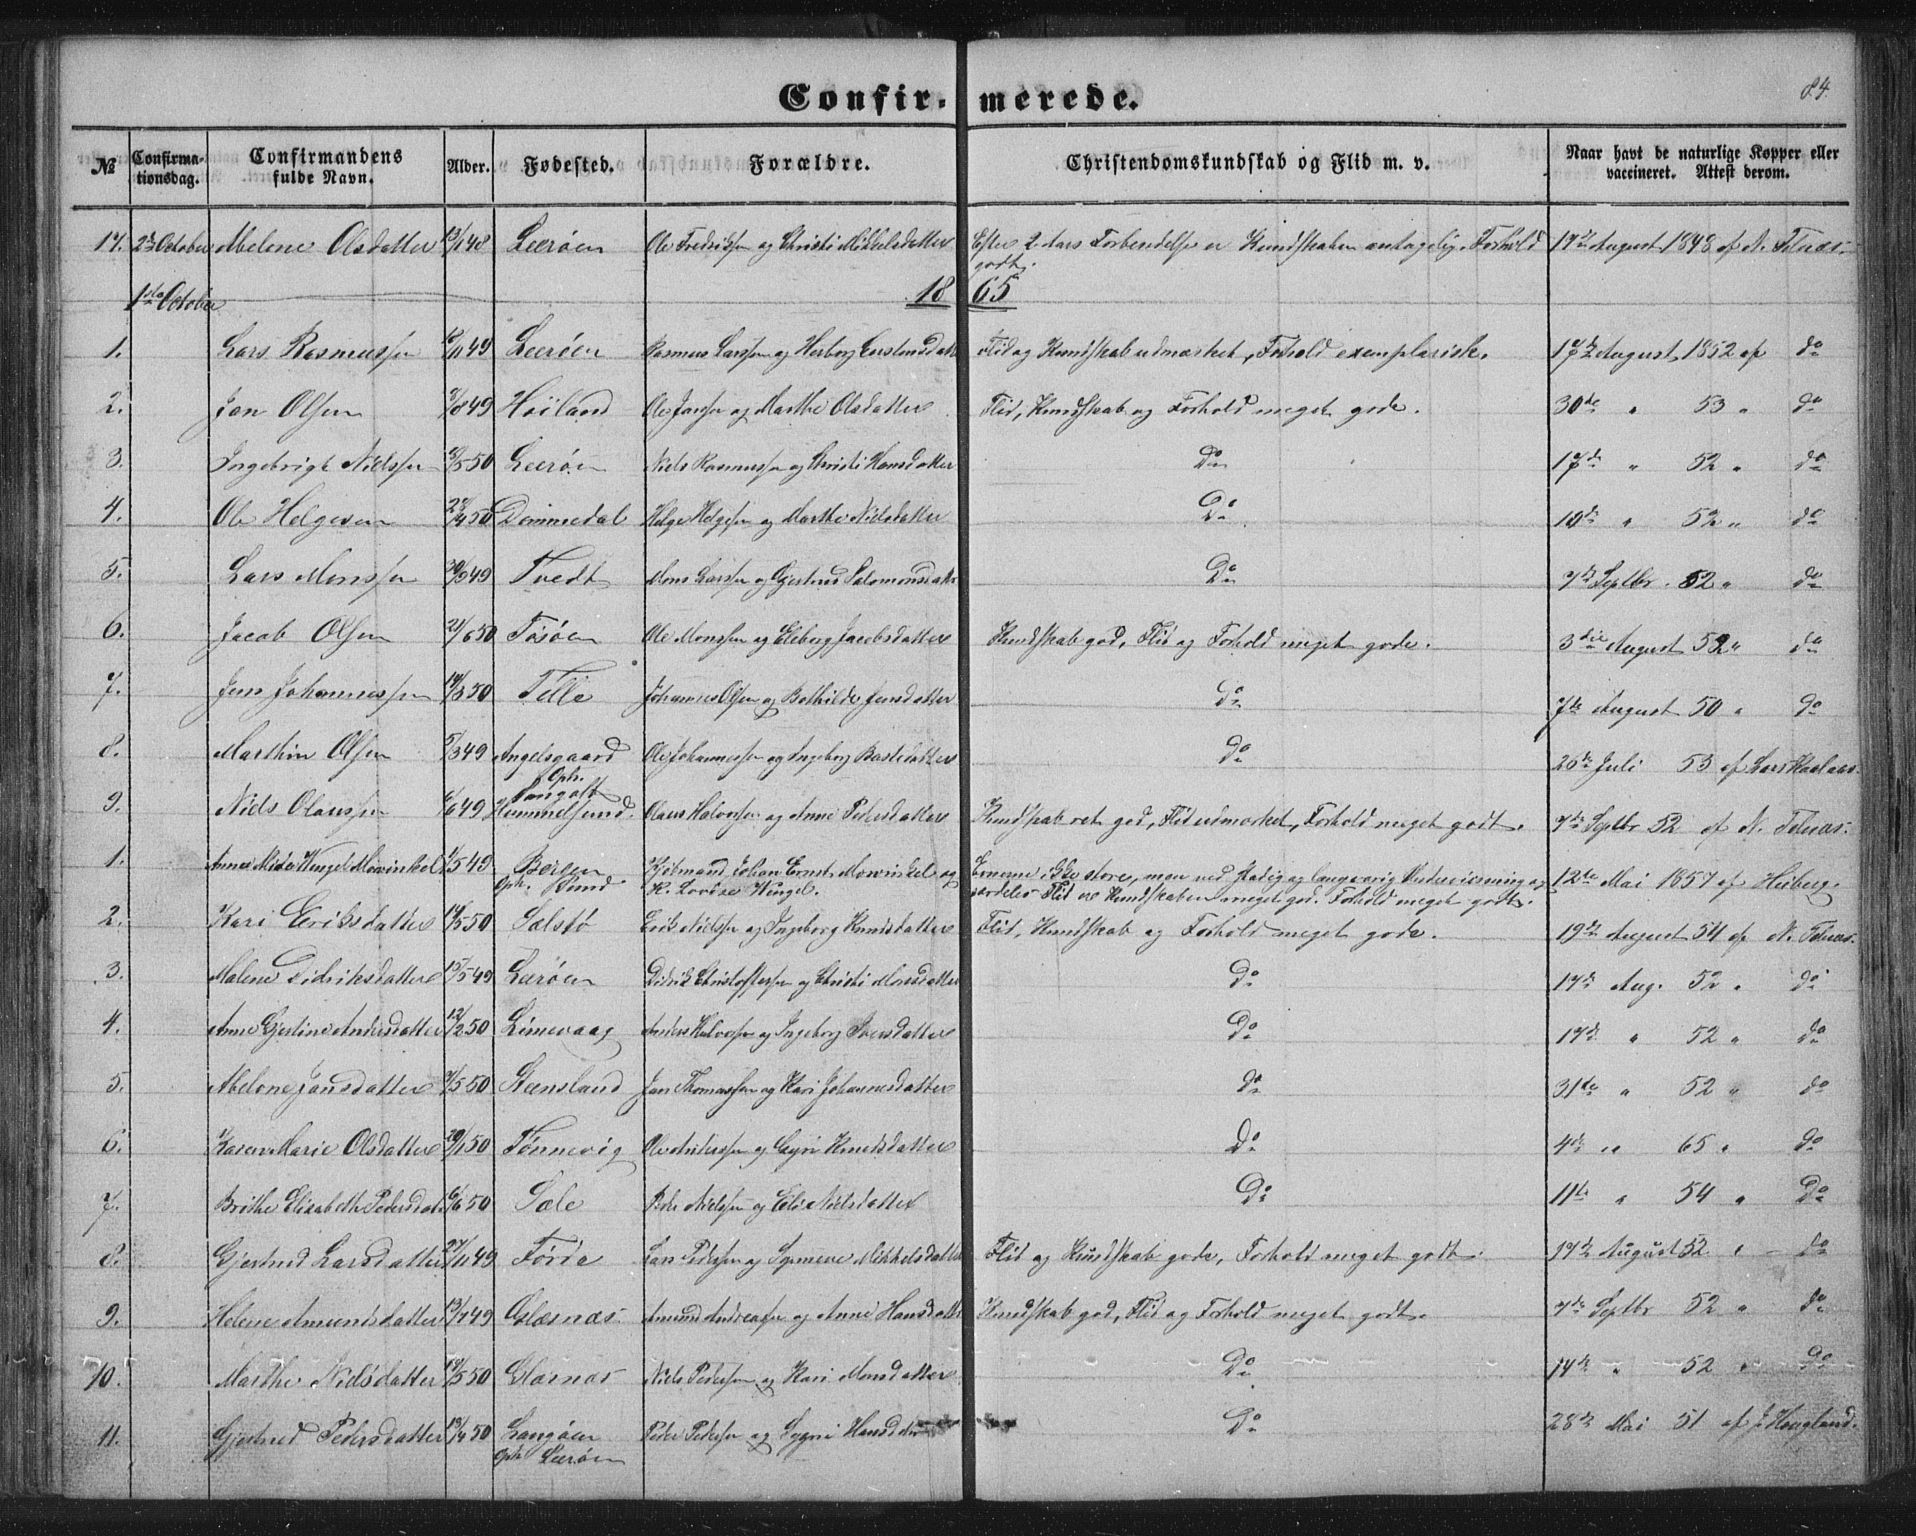 Confirmerede. 84.
No Confirmationsdag. Confirmandens fulde Navn. Alder. Fødested. Forældre. Christendomskundskab og Flid m. v. Naar havt de naturlige Kopper eller vaccineret. Attest derom.
17. 2den October Abelone Olsdatter 48 Leerøen Ole Fredriksen og Christi Mikkelsdatter Efter 2 Aars Forberedelse er Kundskaben antagelig. Forhold godt. 17de August 1848 af N. Telnæs.
1ste October 1865
1. Lars Rasmussen 49 Leerøen Rasmus Larssen og Herborg Flid og Kundskab udmærket, Forhold exemplarisk. 17de August 1852 af do
2. Jan Olsen 49 Høiland Ole Janssen og Marthe Olsdatter Flid, Kundskab og Forhold meget gode. 30de " 53 " do
3. Ingebrigt Nielssen 50 Leerøen Niels Rasmussen og Christi Hansdatter Do 17de " 52 " do
4. Ole Helgesen 50 Dommedal Helge Helgesen og Marthe Nielsdatter Do 10de " 52 " do
5. Lars Monssen 49 Tvedt Mons Larssen og Gjertrud Salomonsdatter Do 7de Septbr. 52 " do
6. Jacob Olsen 21/6 50 Tosøen Ole Monssen og Jacobsdatter Kundskab god, Flid og Forhold meget gode. 3die August 52 " do
7. Jens Johannessen 50 Telle Johannes Olsen og Bothilde Jensdatter Do 7de August 50 " do
8. Marthin Olsen 49 Angelsgaard Oph. Ole Johannessen og Ingeborg do 26de Juli 53 af Lars
9. Niels Olaussen 49 Hummelsund. Olaus Halvorsen og Anne Pedersdatter Kundskab ret god, Flid udmærket, Forhold meget godt. 7de Septbr 52 af N. Telnæs.
1. Anne Wengel Mowinkel 49 Bergen Oph. Sund Kjøbmand Johan Ernst Mowinkel og H. Lovise Wengel. Evnerne ikke store, men ved stadig og langvarig Underviisning og særdeles Flid er Kundskaben meget god. Forhold meget godt. 12te Mai 1857 af Heiberg.
2. Kari Eriksdatter 50 Selstø Erik Nielssen og Ingeborg Knudsdatter Flid, Kundskab og Forhold meget gode. 19de August 54 af N. Telnæs.
3. Malene Didriksdatter 49 Lerøen Didrik Christoffersen og Christi Monsdatter Do 17de Aug. 52 " do
4. Anne Gjertine Andersdatter 12/2 50 Limevaag Anders Halvorsen og Ingeborg Iversdatter Do 17de " 52 " do
5. Abelone Jansdatter 50 Steensland Jan Thomassen og Kari Johannesdatter do 31te " 52 " do
6. Karen Marie Olsdatter 50 Tønnevig Ole Anderssen og Gyri Knudsdatter Do 4de " 65 " do
7. Brithe Elisabeth Pedersdatter 50 Sæle Peder Nielssen og Eli Nielsdatter Do 11te " 54 " Do
8. Gjertrud Larsdatter 49 Førde Lars Pedersen og Synneve Mikkelsdatter Flid og Kundskab gode, Forhold meget godt. 17de August 52. " do
9. Helene Amundsdatter 49 Glæsnæs. Amund Andreassen og Anne Hansdatter Kundskab god, Flid og Forhold meget godt. 7de Septbr 52 " do
10. Marthe Nielsdatter 50 Glæsnæs Niels Pedersen og Kari Monsdatter Do 14de " 52 " do
11. Gjertrud Pedersdatter 50 Langøen Oph. Leerøen Peder Pedersen og Hansdatter Do 28de Mai 51 af J. Haugland.